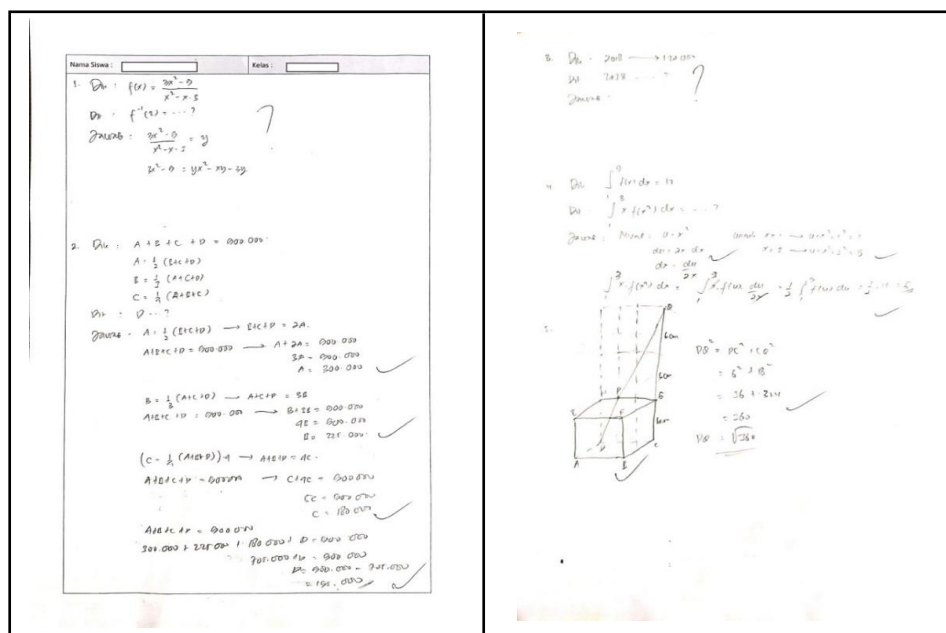 Nama Siswa :
Kelas :
1. Dik : f(x) = 3x² - 9 / x² - x - 3
Dit : f⁻¹(2) = ... ?
Jawab : 3x² - 9 / x² - x - 3 = y
3x² - 9 = yx² - xy - 3y
?
2. Dik : A + B + C + D = 900.000
A = 1/2 (B+C+D)
B = 1/3 (A+C+D)
C = 1/4 (A+B+C)
Dit : D ... ?
Jawab = A = 1/2 (B+C+D) → B+C+D = 2A.
A+B+C+D = 900.000 → A + 2A = 900.000
3A = 900.000
A = 300.000
B = 1/3 (A+C+D) → A+C+D = 3B
A+B+C+D = 900.000 → B+3B = 900.000
4B = 900.000
B = 225.000
(C = 1/4 (A+B+D)) 4 → A+B+D = 4C
A+B+C+D = 900.000 → C+4C = 900.000
5C = 900.000
C = 180.000
A+B+C+D = 900.000
300.000 + 225.000 + 180.000 + D = 900.000
705.000 + D = 900.000
D = 900.000 - 705.000
= 195.000
3. Dik : 2018 → 120.000
Dit 2028 ... ?
Jawab :
?
4. Dik ∫ f(x) dx = 
Dit ∫ x f(x²) dx = ... ?
Jawab : u = x²
du = 2x dx
dx = du/2x
∫ x f(x²) dx = ∫ x f(u) du/2x = 1/2 ∫ f(u) du
5.
Q
6cm
6cm
6cm
P
E
F
G
D
A
B
C
PQ² = PC² + CQ²
= 6² + 18²
= 36 + 324
= 360
PQ = √360